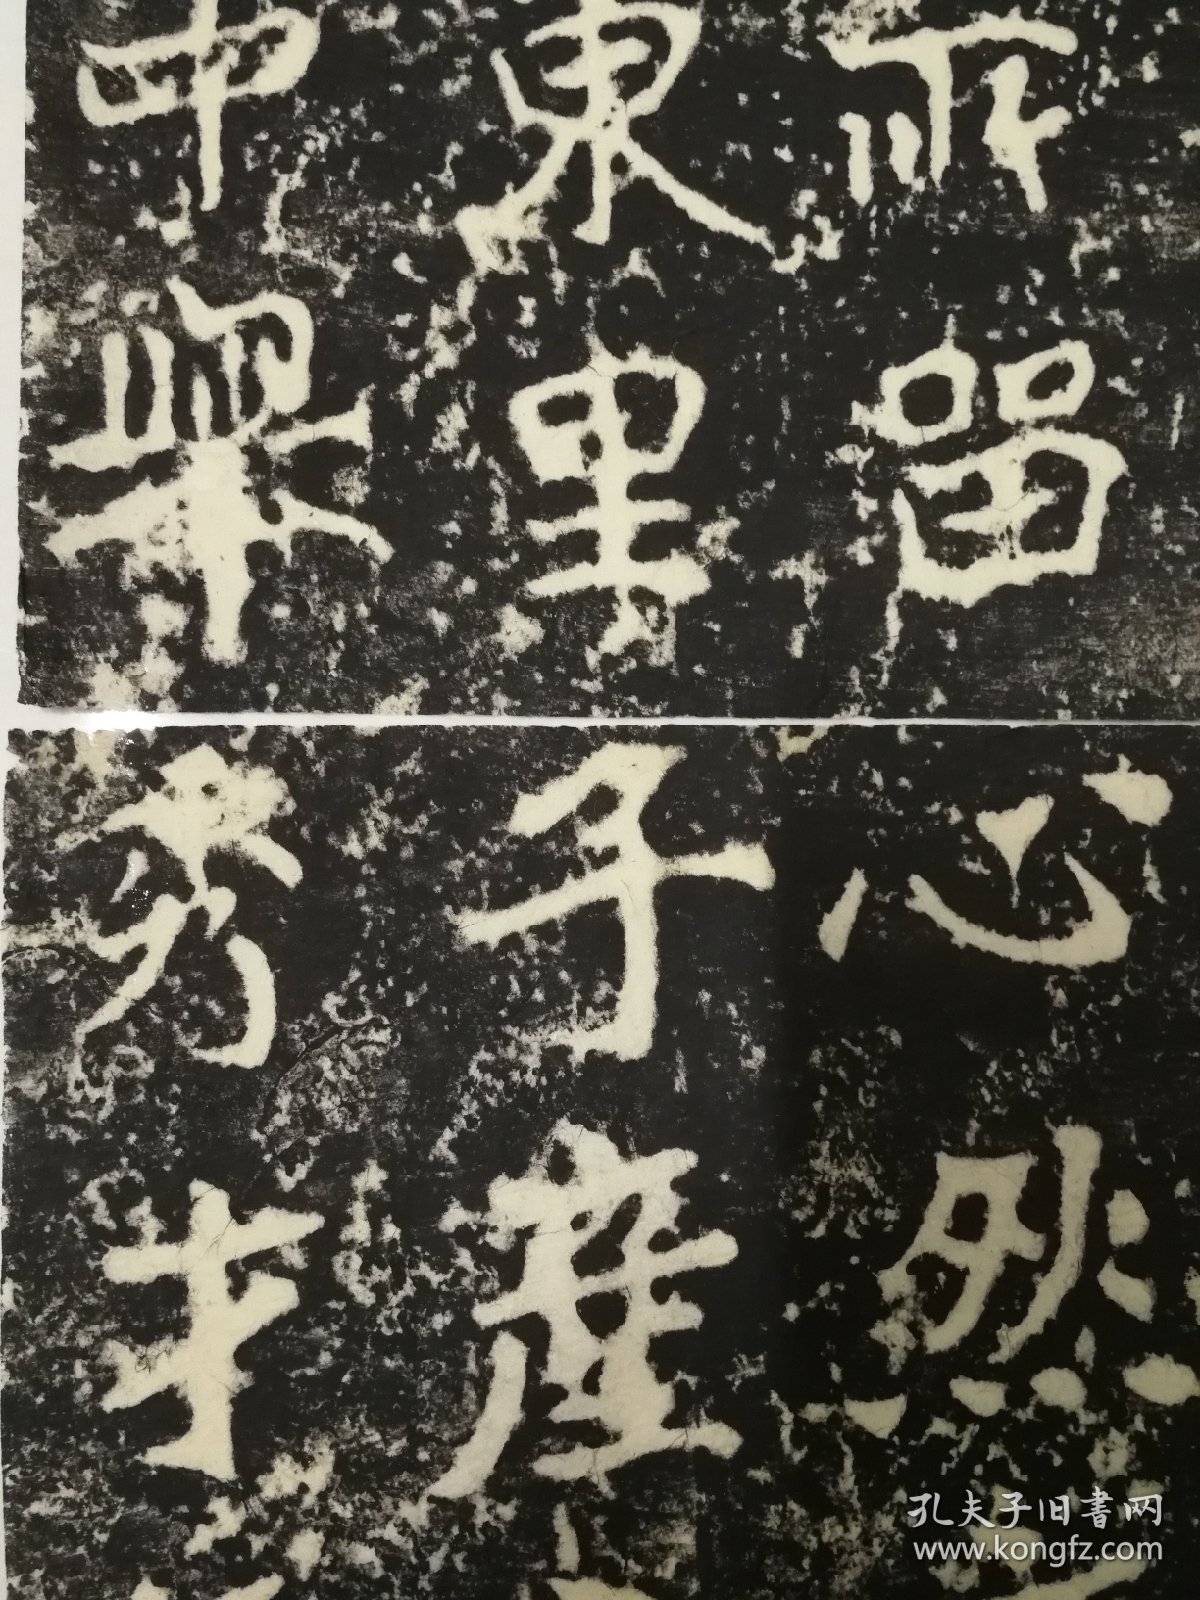 所留
東里
中舉
心然
子產
秀才
孔夫子旧書网
www.kongfz.com